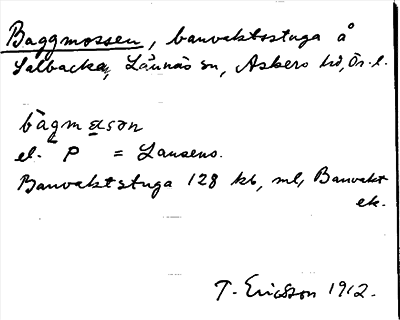 Baggmossen, banvaktsstuga å
Sälbacka, Lännäs sn, Askers hd, Ör. l.
bàgmɷsǝn
el. P = Lansens.
Banvaktstuga 128 kb, ml, Banvakt
ek.
T. Ericsson 1912.